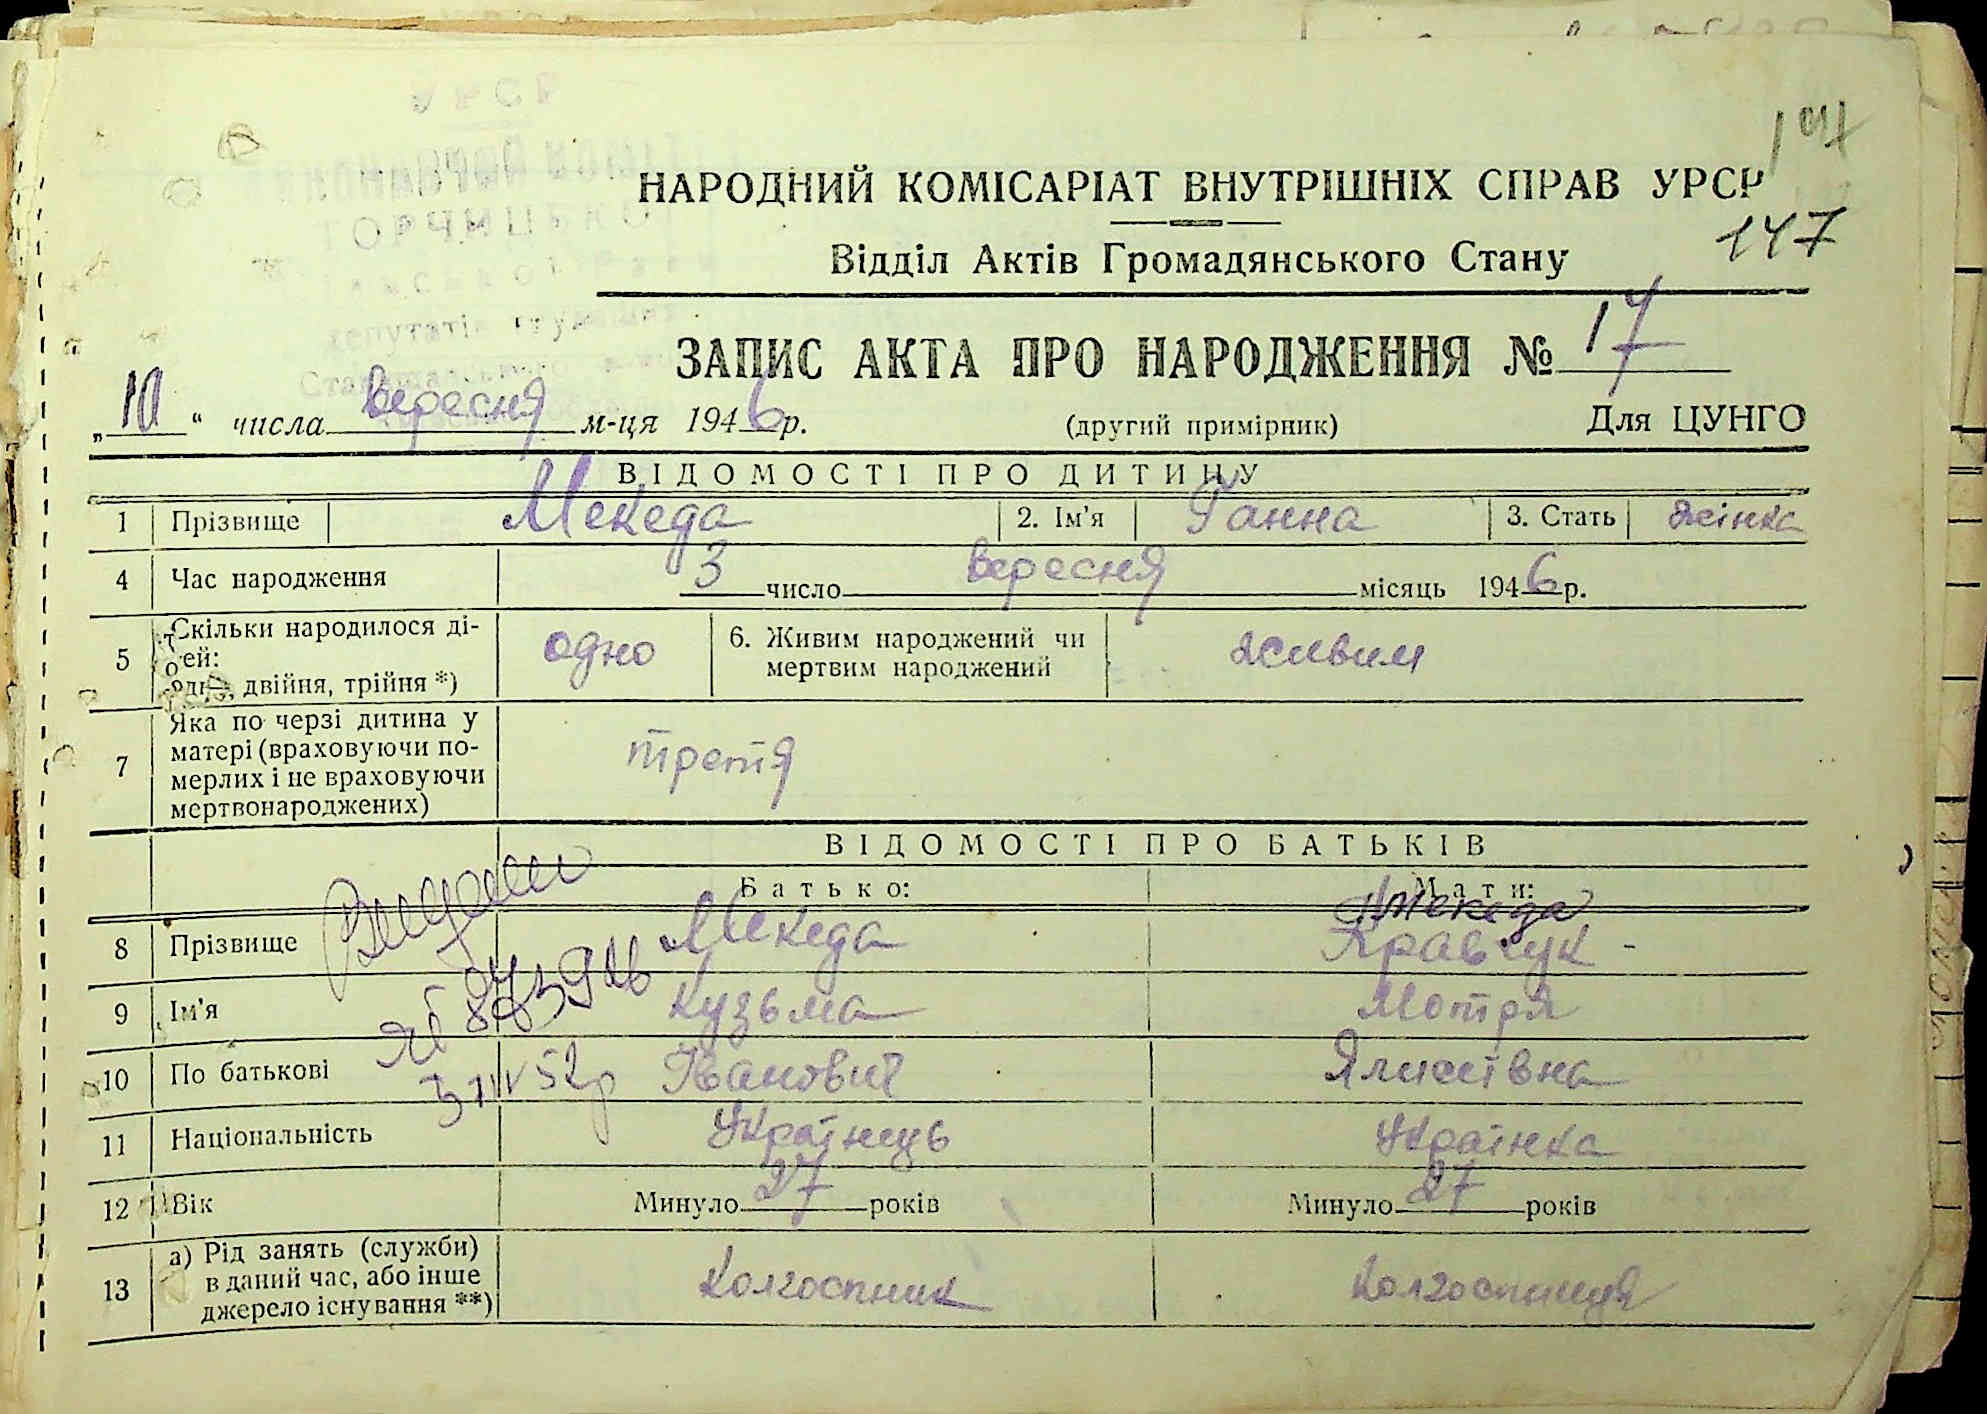 147
НАРОДНИЙ КОМІСАРІАТ ВНУТРІШНІХ СПРАВ УРСР
147
Відділ Актів Громадянського Стану
ЗАПИС АКТА ПРО НАРОДЖЕННЯ № 17
„10“ числа вересня м-ця 1946 р. (другий примірник) Для ЦУНГО
ВІДОМОСТІ ПРО ДИТИНУ
1 Прізвище Мекеда 2. Ім'я Ганна 3. Стать жінка
4 Час народження 3 число вересня місяць 1946 р.
5 Скільки народилося ді-
тей:
одно, двійня, трійня *) одно 6. Живим народжений чи
мертвим народжений живим
7 Яка по черзі дитина у
матері (враховуючи по-
мерлих і не враховуючи
мертвонароджених) третя
ВІДОМОСТІ ПРО БАТЬКІВ
Батько: Мати:
Мекеда
8 Прізвище Мекеда Кравчук
9 Ім'я Кузьма Мотря
10 По батькові Іванович
11 Національність Українець Українка
12 Вік Минуло 27 років Минуло 27 років
13 а) Рід занять (служби)
в даний час, або інше
джерело існування **) Колгоспник Колгоспниця